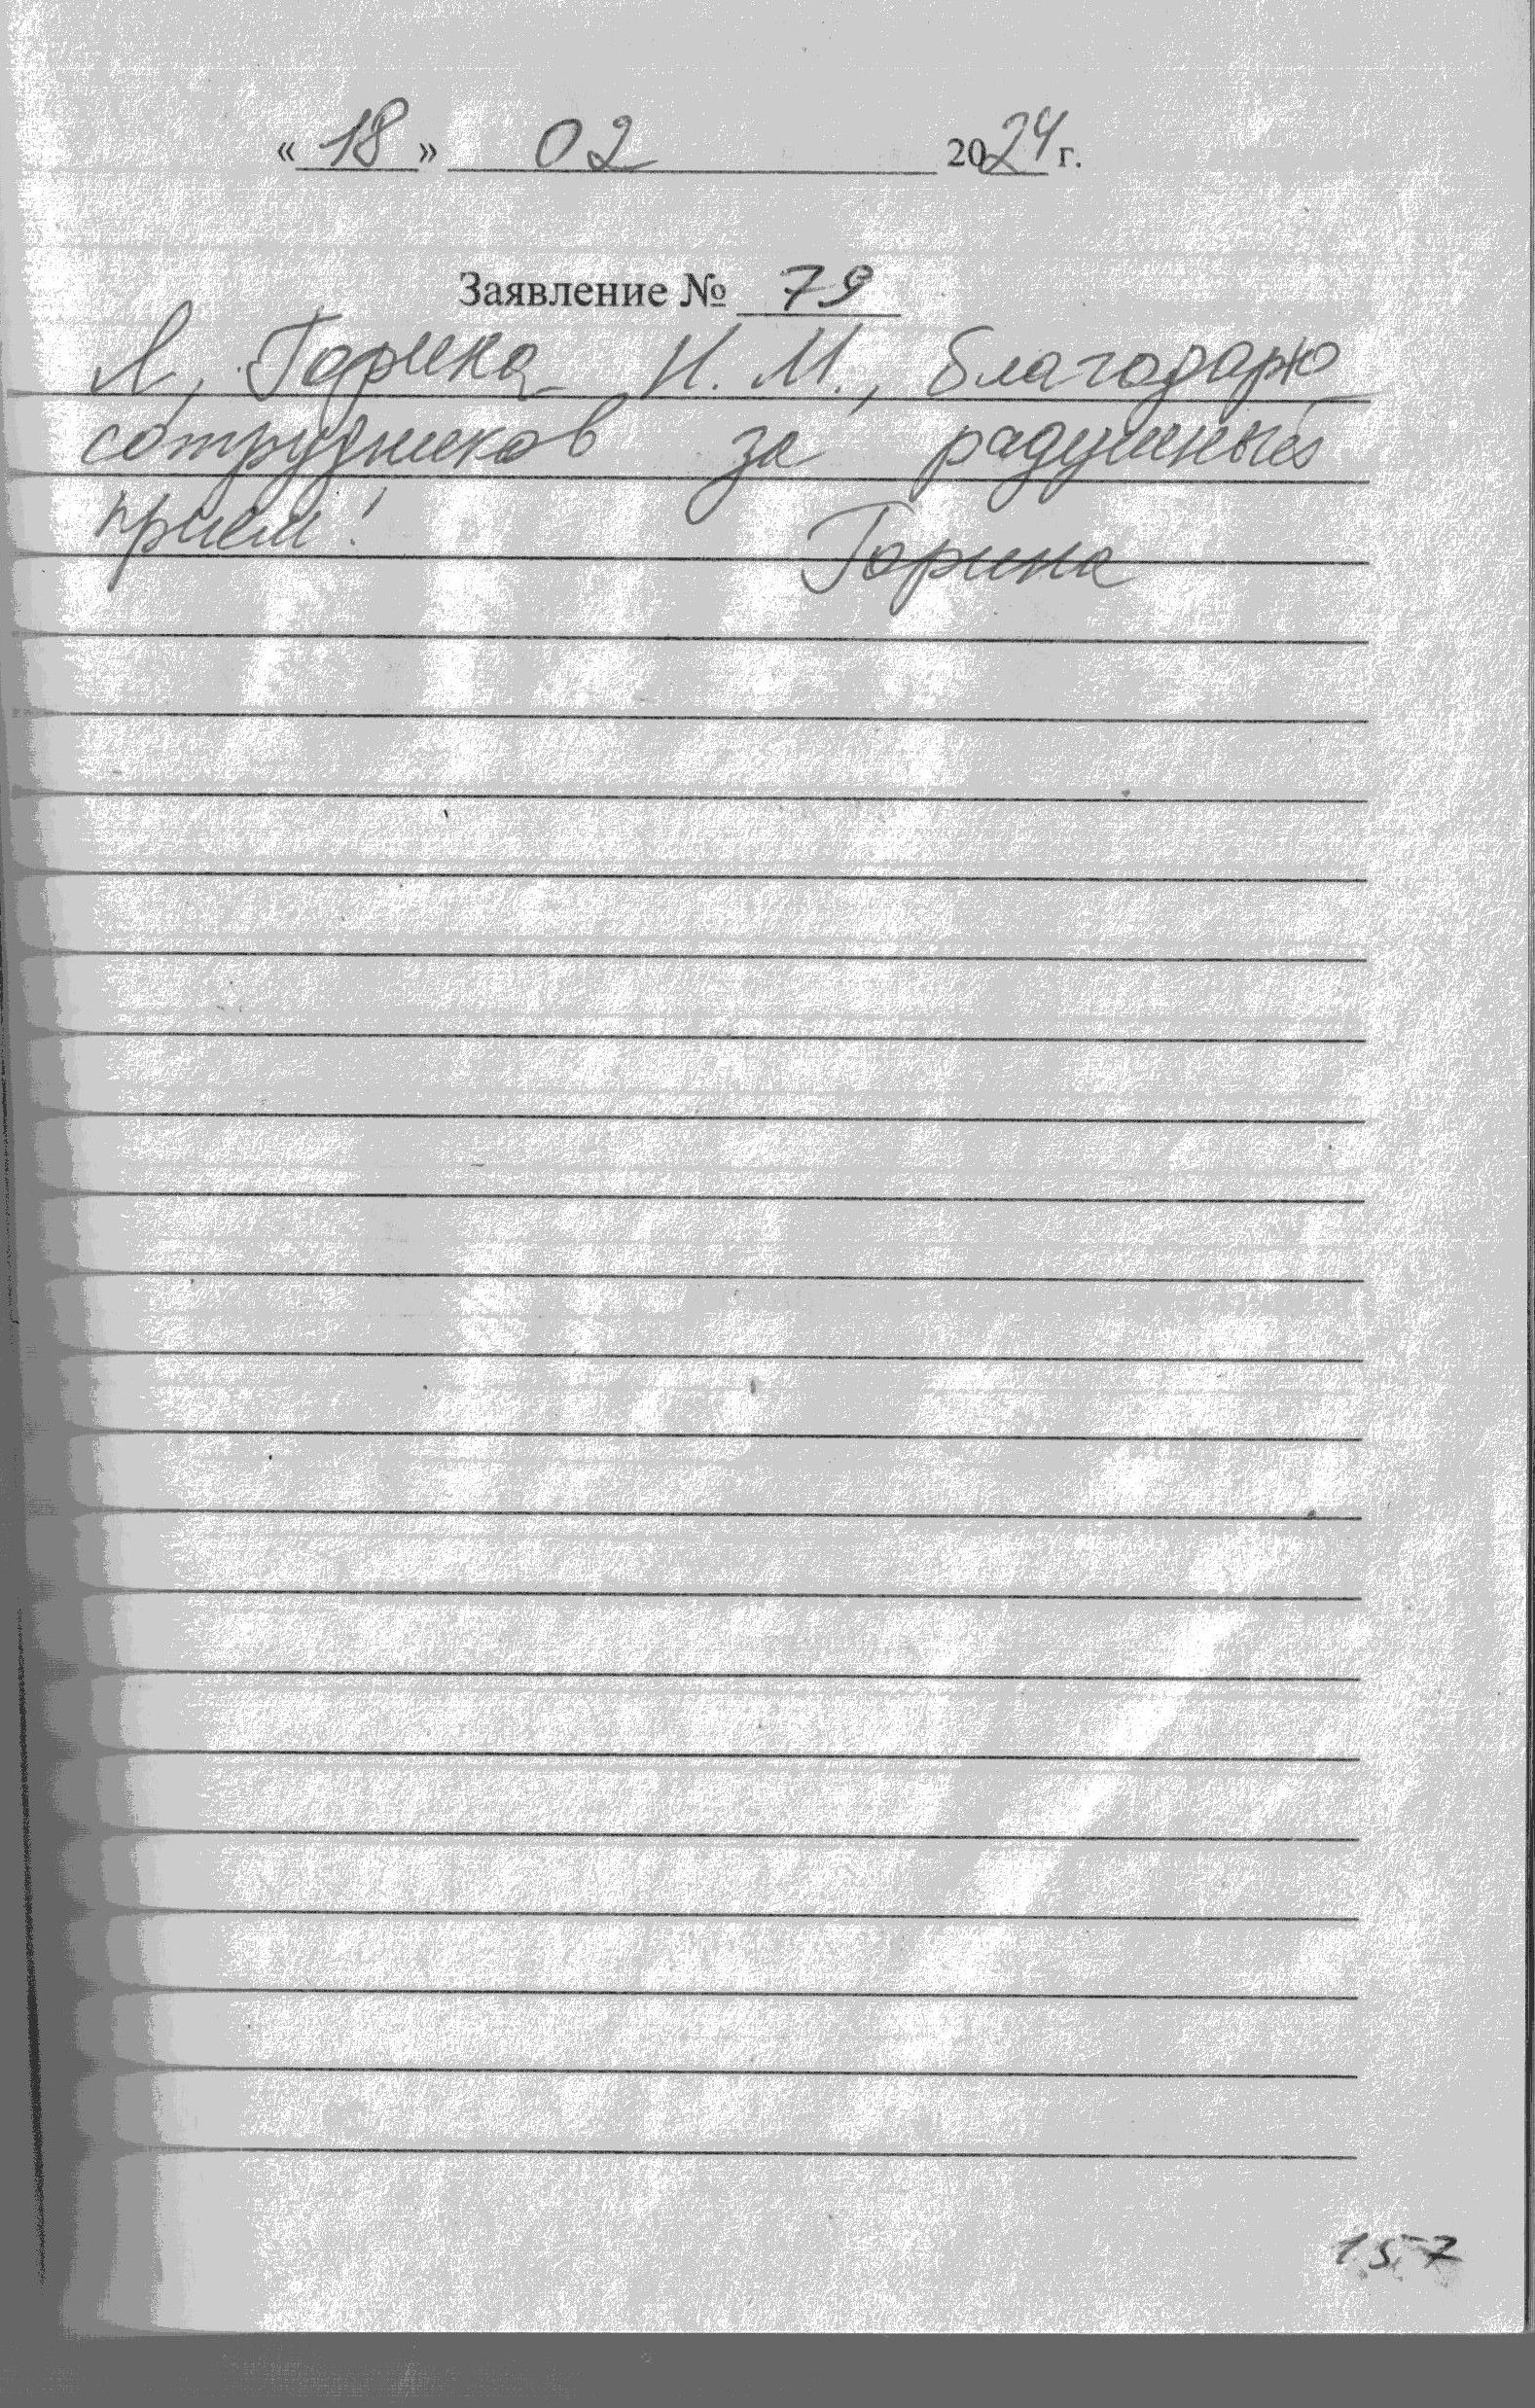 «18» 02 2024 г.
Заявление № 79
Я, Горина Н. М., благодарю
сотрудников за радушный
прием!
Горина
157